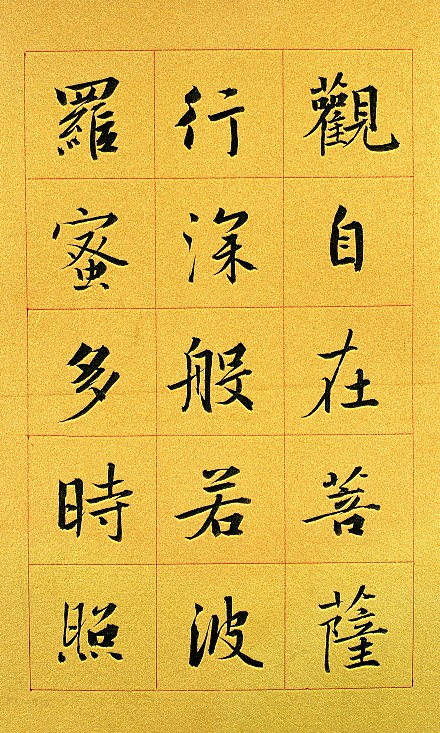 觀自在菩薩
行深般若波
羅蜜多時照